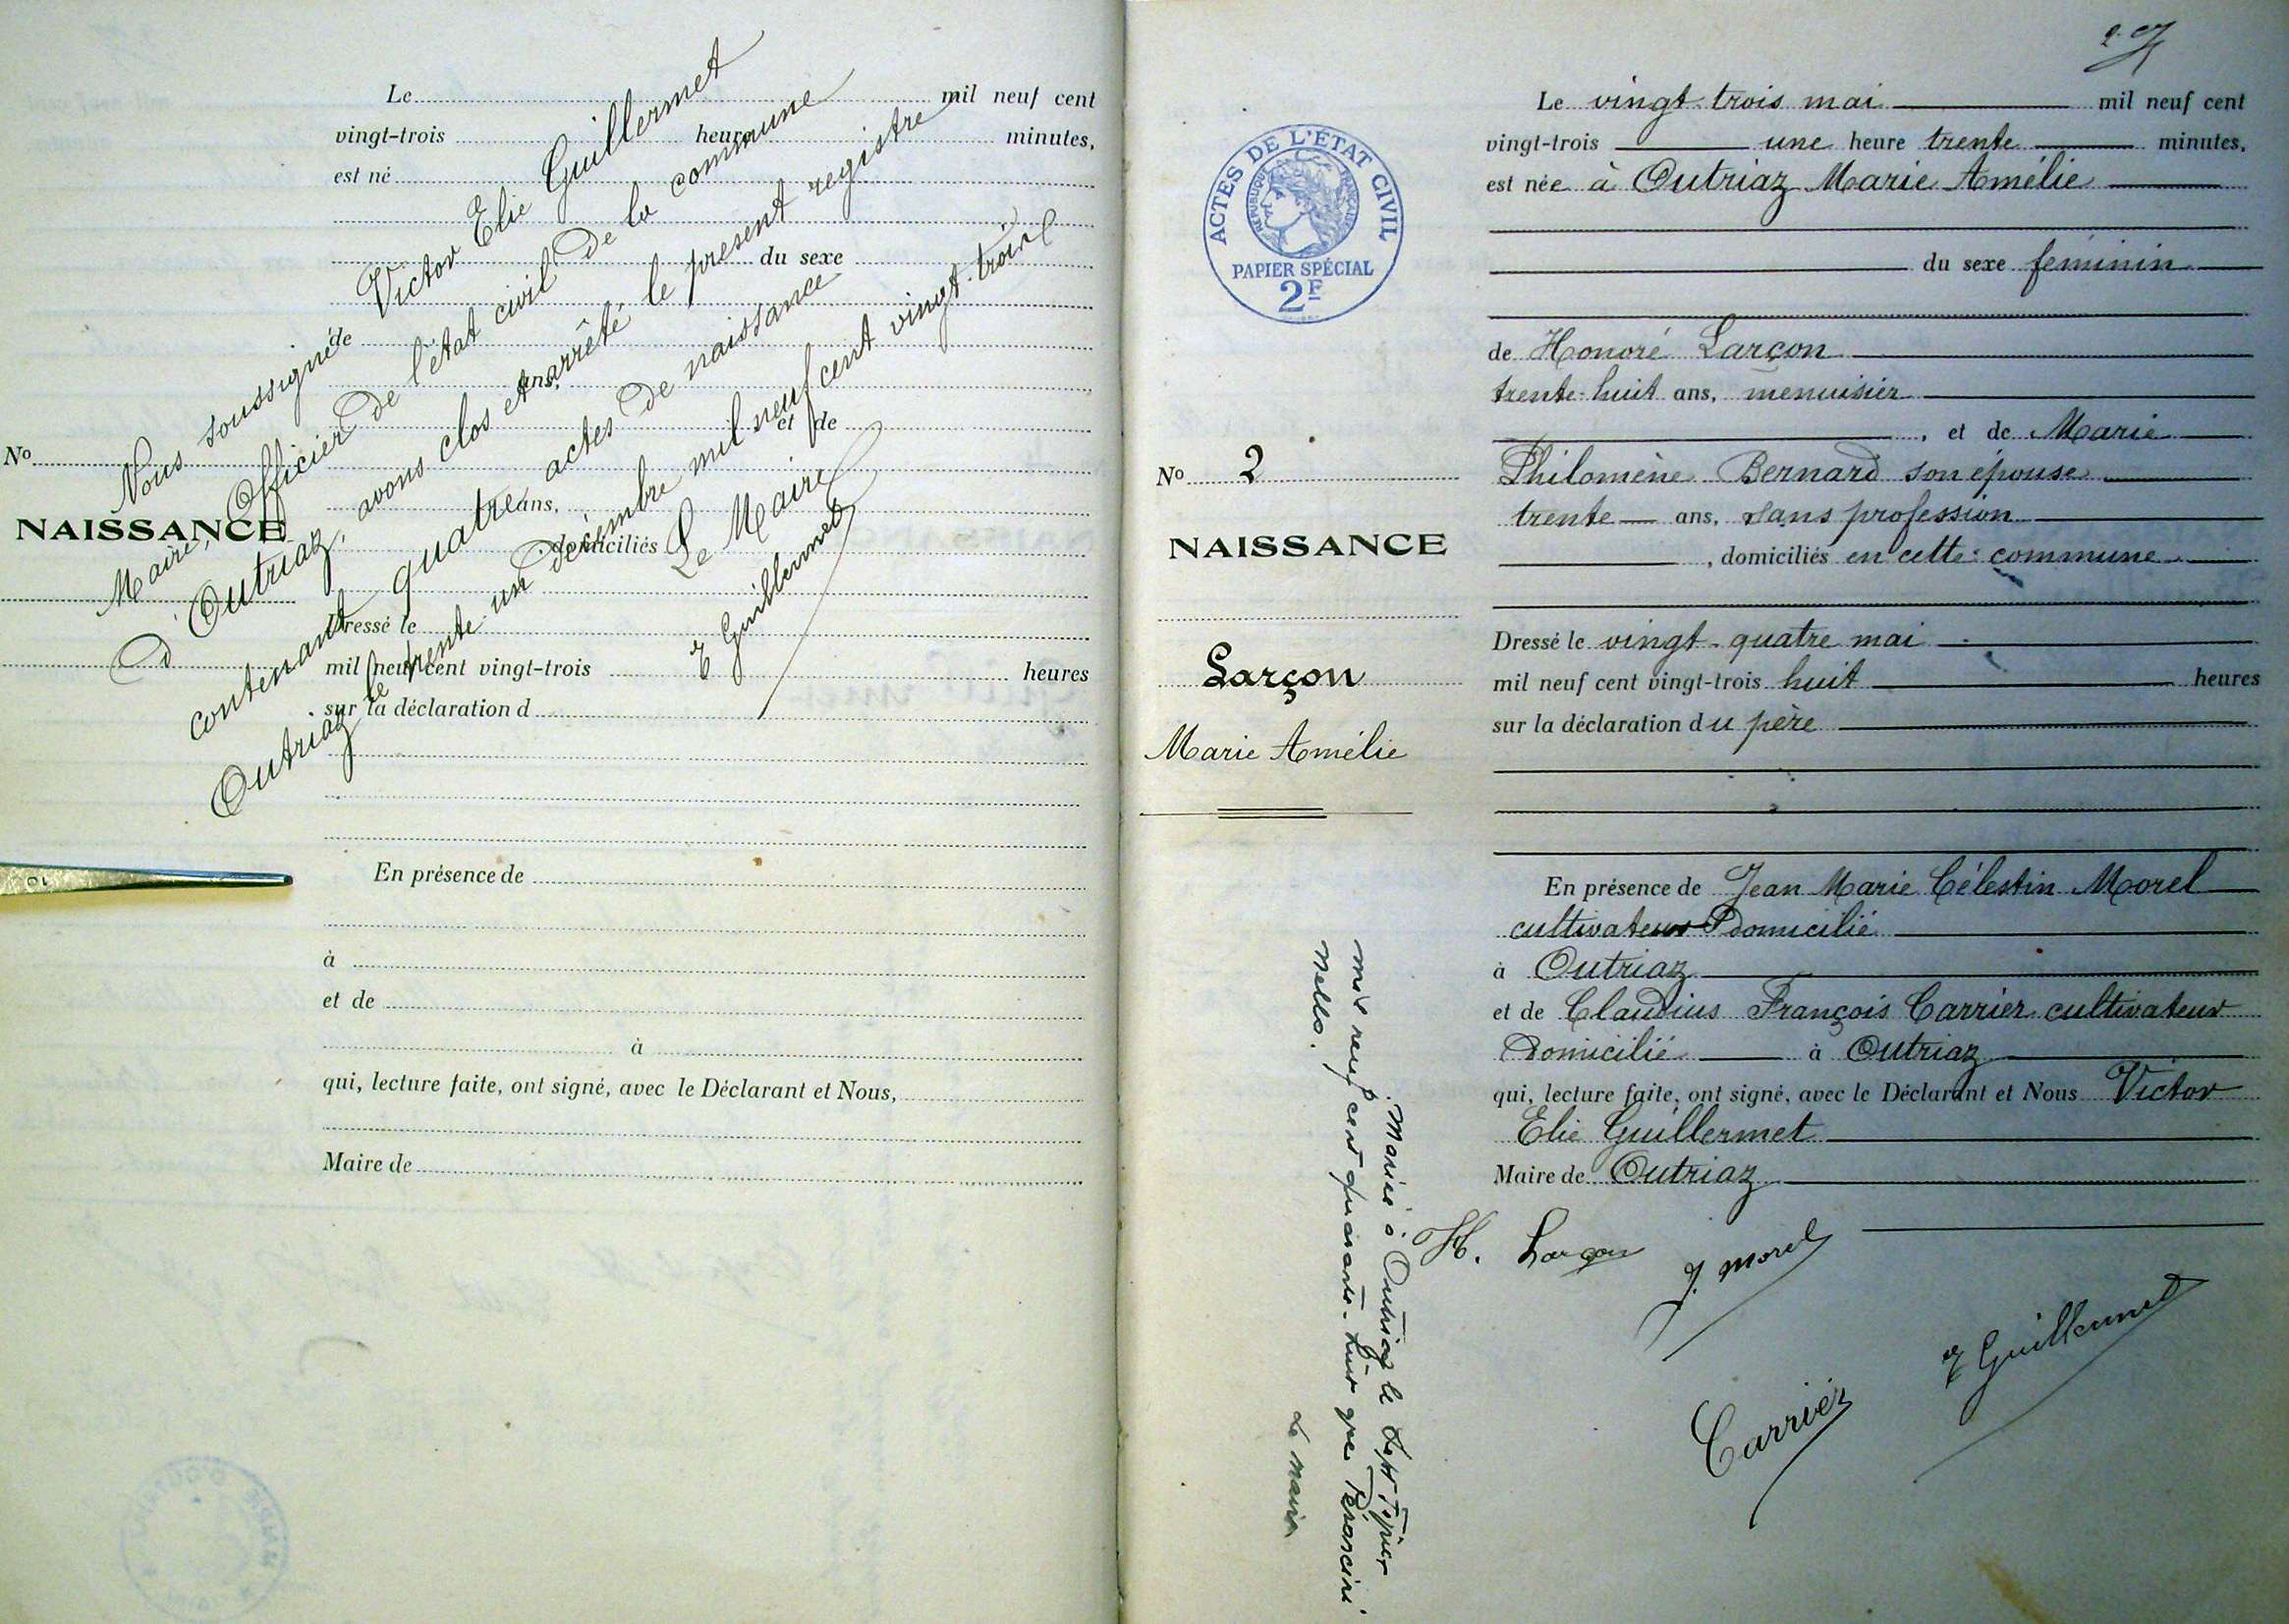 Le mil neuf cent
vingt-trois heure minutes,
est né
du sexe
de
ans,
et de
ans,
domiciliés
Dressé le
mil neuf cent vingt-trois heures
sur la déclaration d
En présence de
à
et de
à
qui, lecture faite, ont signé, avec le Déclarant et Nous,
Maire de
No
NAISSANCE
Nous soussigné Victor Elie Guillermet
Maire, Officier de l'état civil de la commune
d'Outriaz, avons clos et arrêté le présent registre
contenant quatre actes de naissance
Outriaz le trente-un décembre mil neuf cent vingt-trois
Le Maire
E Guillermet
10
ACTES DE L'ÉTAT CIVIL
RÉPUBLIQUE FRANÇAISE
PAPIER SPÉCIAL
2F
No 2
NAISSANCE
Larçon
Marie Amélie
Le vingt trois mai mil neuf cent
vingt-trois une heure trente minutes,
est née à Outriaz Marie Amélie
du sexe féminin
de Honoré Larçon
trente-huit ans, menuisier
, et de Marie
Philomène Bernard son épouse
trente ans, sans profession
, domiciliés en cette commune
Dressé le vingt-quatre mai
mil neuf cent vingt-trois huit heures
sur la déclaration du père
En présence de Jean Marie Célestin Morel
cultivateur domicilié
à Outriaz
et de Claudius François Carrier cultivateur
domicilié à Outriaz
qui, lecture faite, ont signé, avec le Déclarant et Nous Victor
Elie Guillermet
Maire de Outriaz
H. Larçon
J. Morel
E Guillermet
Carrier
Mariée à Outriaz le sept
mil neuf cent quarante-huit avec
Nello.
Le Maire